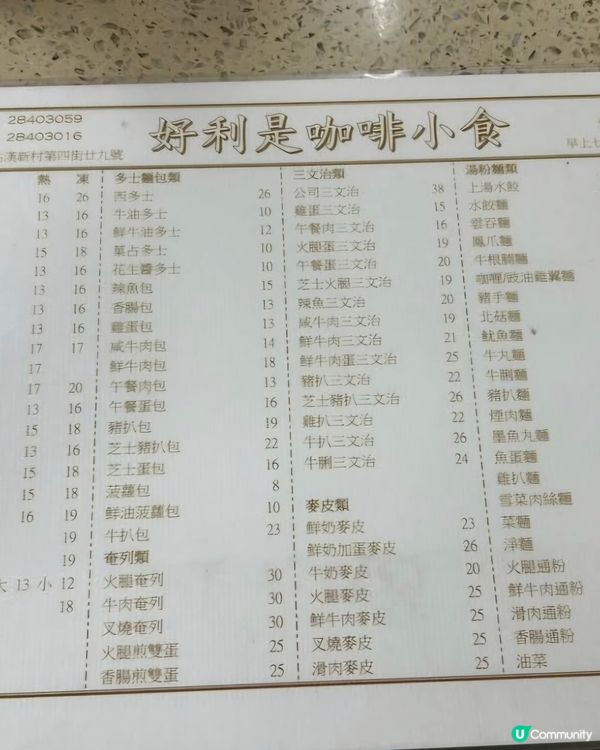 28403059
28403016
漢新村第四街廿九號
好利是咖啡小食
早上七
熱 凍
16 26
13 16
13 16
15 18
13 16
13 16
13 16
13 16
17 17
17
17 20
13 16
15 18
13 16
15 18
15 18
16 19
19
19
大 13 小 12
18
多士麵包類
西多士 26
牛油多士 10
鮮牛油多士 12
菓占多士 10
花生醬多士 10
辣魚包 15
香腸包 13
雞蛋包 13
咸牛肉包 14
鮮牛肉包 18
午餐肉包 13
午餐蛋包 16
豬扒包 19
芝士豬扒包 22
芝士蛋包 16
菠蘿包 8
鮮油菠蘿包 10
牛扒包 23
奄列類
火腿奄列 30
牛肉奄列 30
叉燒奄列 30
火腿煎雙蛋 25
香腸煎雙蛋 25
三文治類
公司三文治 38
雞蛋三文治 15
午餐肉三文治 16
火腿蛋三文治 19
午餐蛋三文治 20
芝士火腿三文治 19
辣魚三文治 20
咸牛肉三文治 19
鮮牛肉三文治 21
鮮牛肉蛋三文治 25
豬扒三文治 22
芝士豬扒三文治 26
雞扒三文治 22
牛扒三文治 26
牛脷三文治 24
麥皮類
鮮奶麥皮 23
鮮奶加蛋麥皮 26
牛奶麥皮 20
火腿麥皮 25
鮮牛肉麥皮 25
叉燒麥皮 25
滑肉麥皮 25
湯粉麵類
上湯水餃
水餃麵
雲吞麵
鳳爪麵
牛根腩麵
咖喱/豉油雞翼麵
豬手麵
北菇麵
魷魚麵
牛丸麵
牛脷麵
豬扒麵
煙肉麵
墨魚丸麵
魚蛋麵
雞扒麵
雪菜肉絲麵
菜麵
淨麵
火腿通粉
鮮牛肉通粉
滑肉通粉
香腸通粉
油菜
U Community